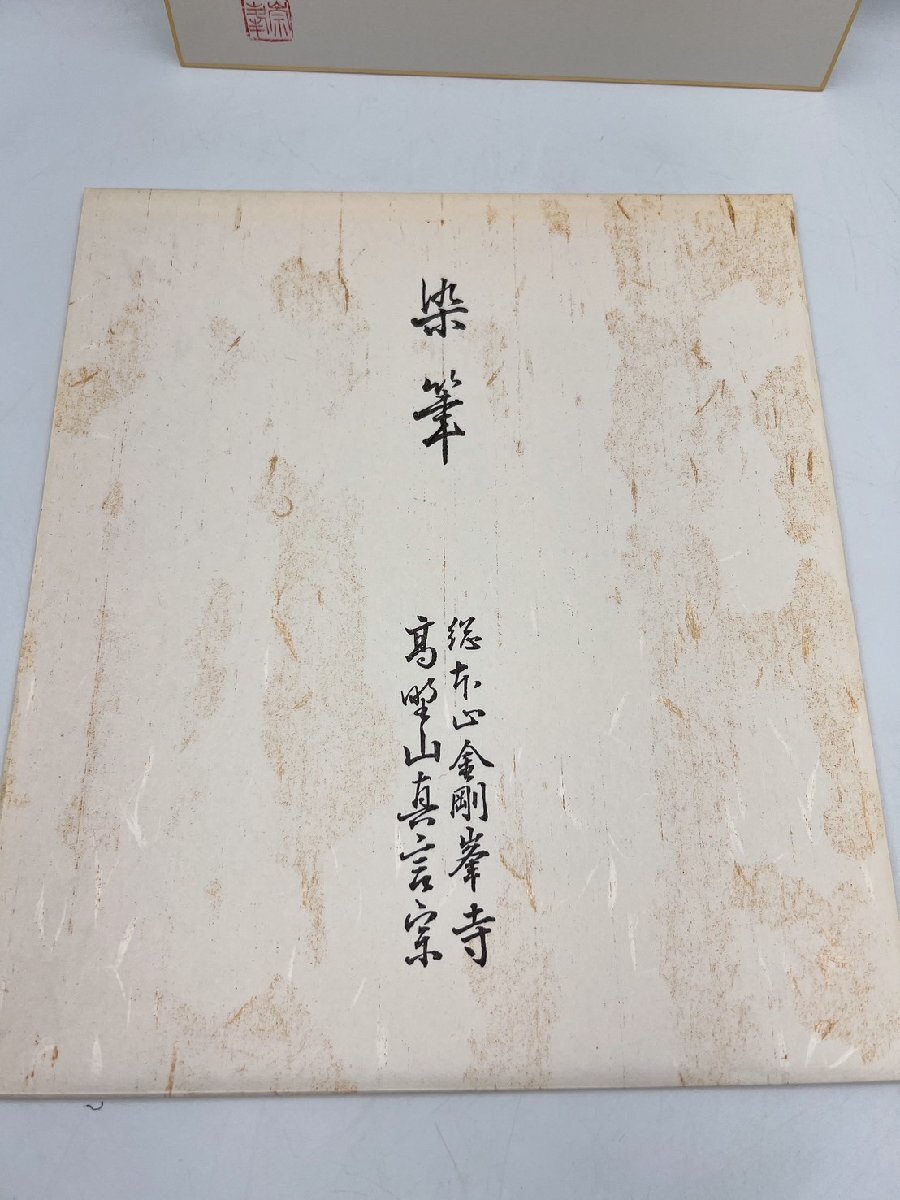 染筆
総本山金剛峯寺
高野山真言宗